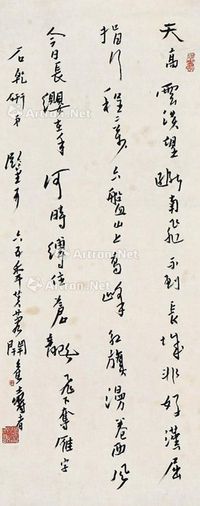 天高雲淡望斷南飛不到長城非好漢屈
指行程二萬六盤山上高峰紅旗漫卷西風
今日長纓在手何時縛住蒼龍 飛下奪雁字
石乾研弟 六五年芙蓉開
Artron.Net